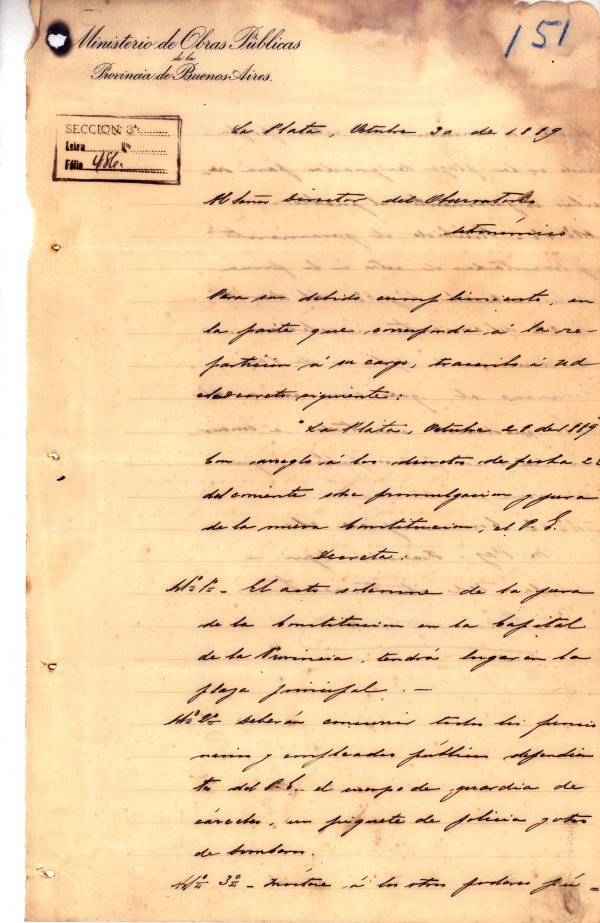 151
Ministerio de Obras Públicas
de la
Provincia de Buenos Aires.
SECCION 3ª
Letra Nº
Fólio 486
La Plata, Octubre 30 de 1889
Al Señor Director del Observatorio
Astronómico
Para su debido cumplimiento, en
la parte que corresponda á la re-
particion á su cargo, trascribo á Ud
el decreto siguiente:
"La Plata, Octubre 29 de 1889"
Con arreglo á los decretos de fecha
del corriente sobre promulgacion y jura
de la nueva Constitucion, el P. E.
Decreta:
Artº 1º - El acto solemne de la jura
de la Constitucion en la Capital
de la Provincia, tendrá lugar en la
plaza principal. -
Artº 2º Deberán concurrir todos los funcio
narios y empleados públicos dependien
tes del P. E. el cuerpo de guardia de
cárceles, un piquete de policia y otro
de bomberos.
Artº 3º - Invítese á los otros poderes pú-